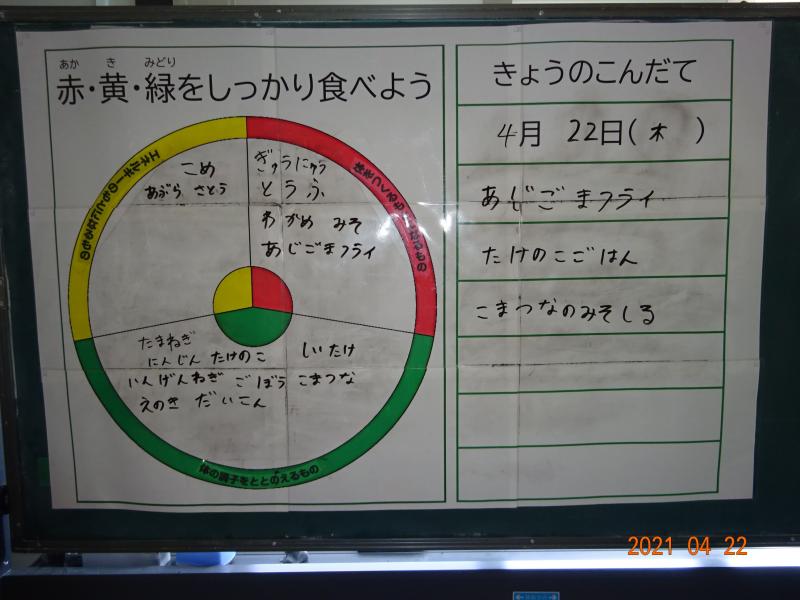 あか き みどり
赤・黄・緑をしっかり食べよう
エネルギーのもとになるもの
こめ
あぶら さとう
体をつくるもとになるもの
ぎゅうにゅう
とうふ
わかめ みそ
あじごまフライ
たまねぎ
にんじん たけのこ しいたけ
いんげんねぎ ごぼう こまつな
えのき だいこん
体の調子をととのえるもの
きょうのこんだて
4月 22日(木)
あじごまフライ
たけのこごはん
こまつなのみそしる
2021 04 22